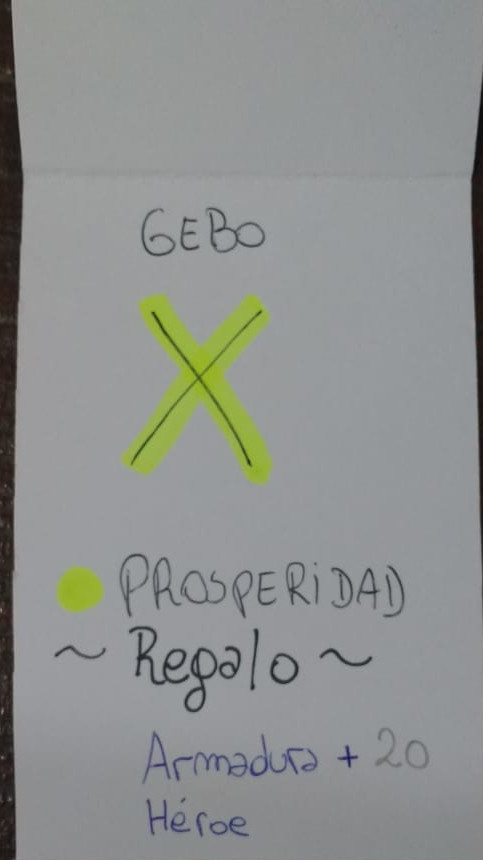 GEBO
X
PROSPERiDAD
~ Regalo ~
Armadura + 20
Héroe